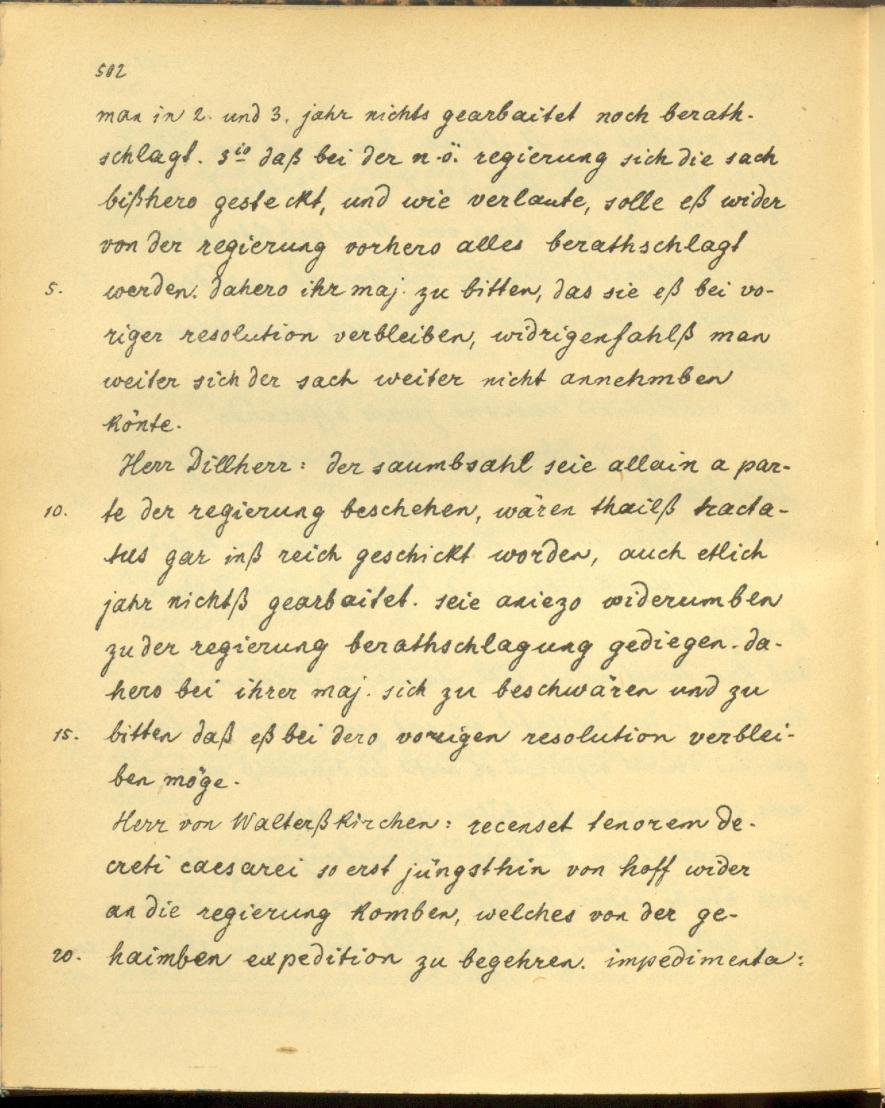 502
man in 2. und 3. jahr nichts gearbaitet noch berath-
schlagt. 3io daß bei der n.ö. regierung sich die sach
bißhero gesteckt, und wie verlaute, solle eß wider
von der regierung vorhero alles berathschlagt
5. werden. dahero ihr maj. zu bitten, das sie eß bei vo-
riger resolution verbleiben, widrigenfahlß man
weiter sich der sach weiter nicht annehmben
könte.
Herr Dillherr: der saumbsahl seie allain a par-
10. te der regierung beschehen, wären thailß tracta-
tus gar inß reich geschickt worden, auch etlich
jahr nichtß gearbaitet. seie aniezo widerumben
zu der regierung berathschlagung gediegen. da-
hero bei ihrer maj. sich zu beschwären und zu
15. bitten daß eß bei dero vorigen resolution verblei-
ben möge.
Herr von Walterßkirchen: recenset tenorem de-
creti caesarei so erst jüngsthin von hoff wider
an die regierung komben, welches von der ge-
20. haimben expedition zu begehren. impedimenta: